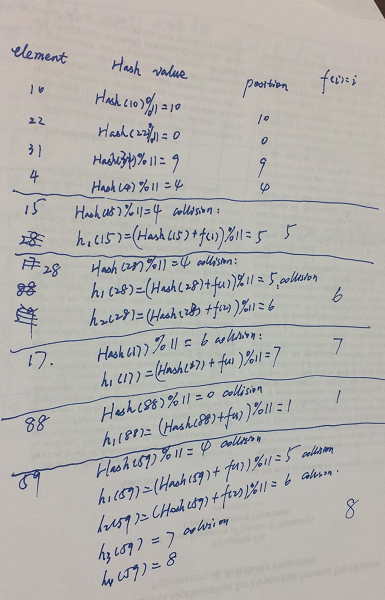 element Hash value position f(i)=i
10 Hash(10)%11=10 10
22 Hash(22)%11=0 0
31 Hash(31)%11=9 9
4 Hash(4)%11=4 4
15 Hash(15)%11=4 collision:
h1(15)=(Hash(15)+f(1))%11=5 5
28 Hash(28)%11=4 collision:
h1(28)=(Hash(28)+f(1))%11=5 collision
h2(28)=(Hash(28)+f(2))%11=6 6
17. Hash(17)%11=6 collision:
h1(17)=(Hash(17)+f(1))%11=7 7
88 Hash(88)%11=0 collision
h1(88)=(Hash(88)+f(1))%11=1 1
59 Hash(59)%11=4 collision
h1(59)=(Hash(59)+f(1))%11=5 collision
h2(59)=(Hash(59)+f(2))%11=6 collision.
h3(59)=7 collision
h4(59)=8 8